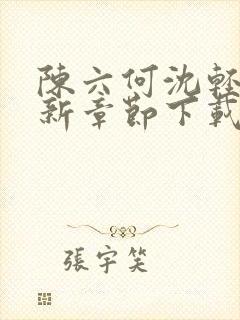 陳六何沈輕
新章節下載
張宇笑